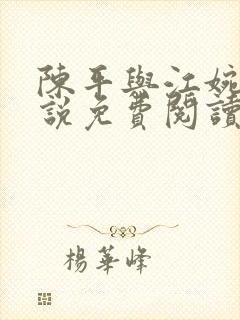 陳平與江婉
說免費閱讀
楊華峰